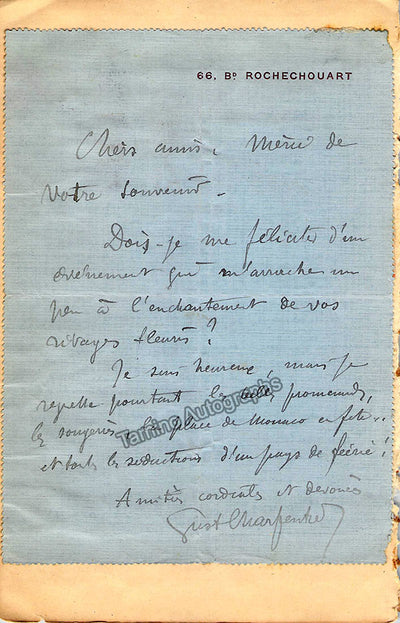 66, Bᴅ ROCHECHOUART
Chers amis, Merci de
votre souvenir.
Dois-je me féliciter d'un
événement qui m'arrache un
peu à l'enchantement de vos
rivages fleuris ?
Je suis heureux, mais je
regrette pourtant les belles promenades,
les songeries, la place de Monaco en fête..
et toutes les séductions d'un pays de féerie !
Tamino Autographs
Amitiés cordiales et dévouées
Gust Charpentier